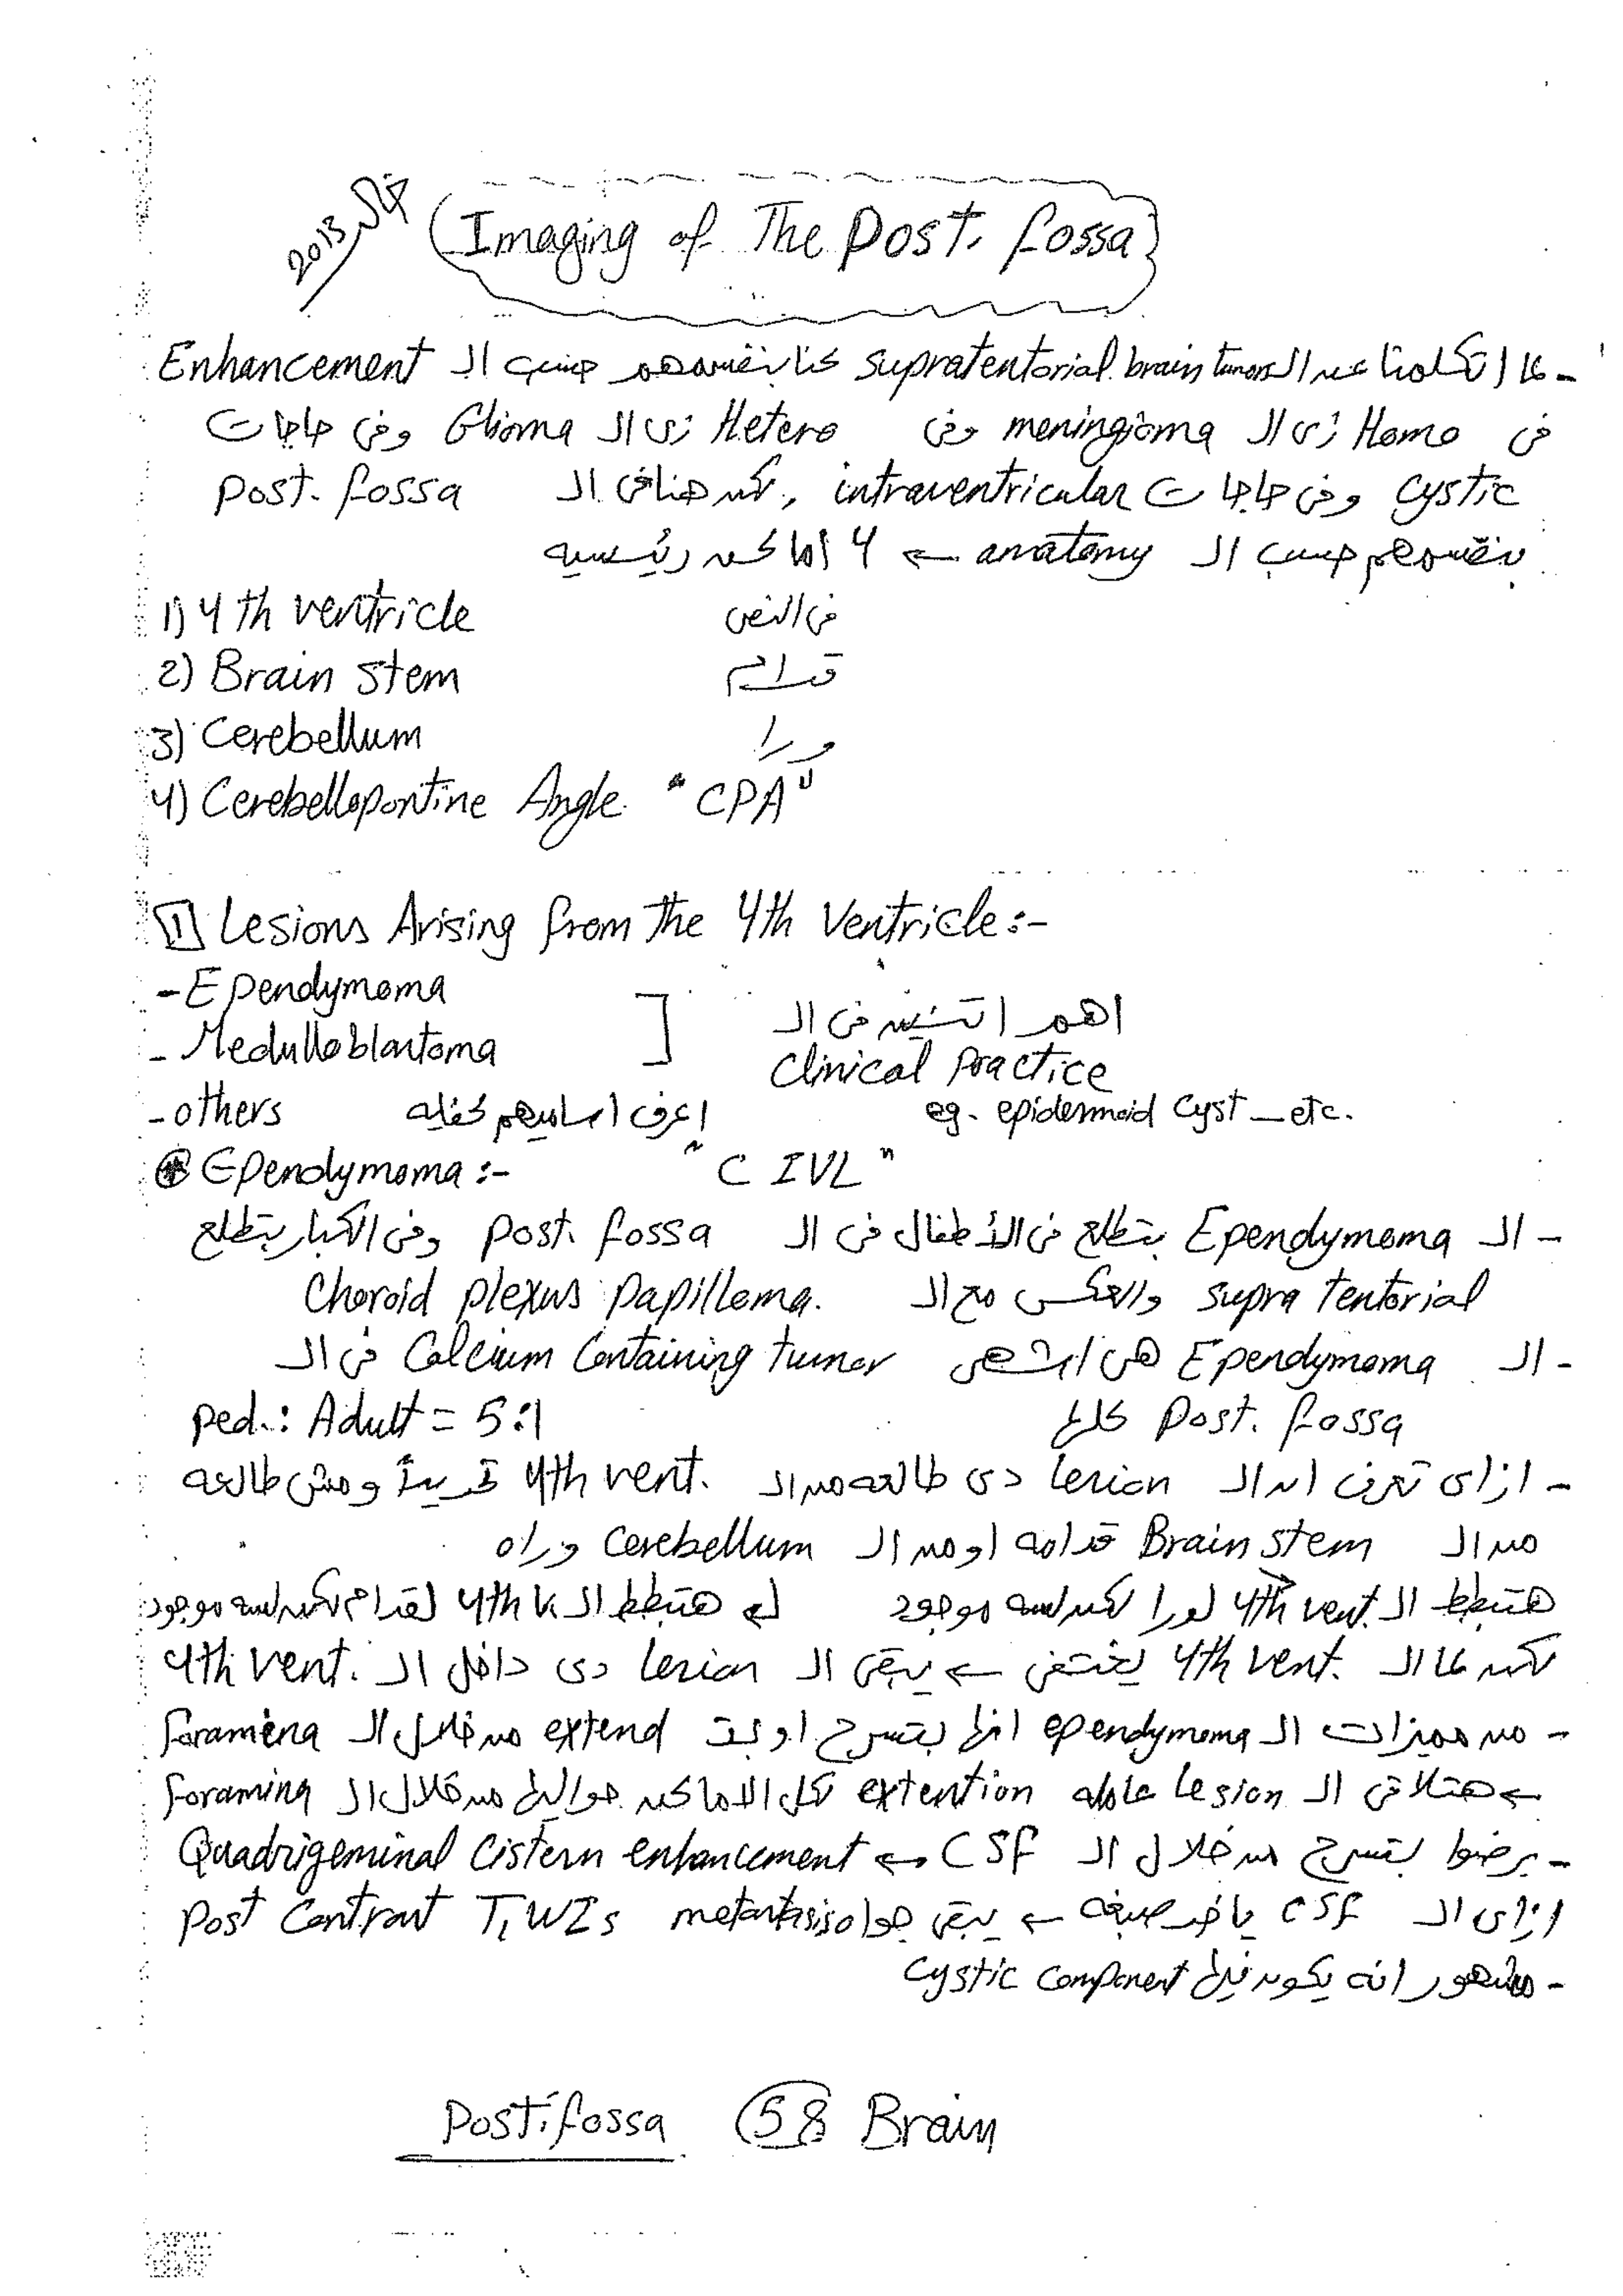 2013
Imaging of The Post. fossa
- لما اتكلمنا عن ال supratentorial brain tumors كنا بنقسمهم حسب ال Enhancement
فى Homo زى ال meningioma وفى Hetero زى ال Glioma وفى حاجات
cystic وفى حاجات intraventricular , لكن هنا فى ال post. fossa
بنقسمهم حسب ال anatomy ← 4 أماكن رئيسيه
1) 4 th ventricle فى النص
2) Brain stem قدام
3) Cerebellum ورا
4) Cerebellopontine Angle "CPA"
1 Lesions Arising from The 4th Ventricle :-
- Ependymoma
- Medulloblastoma
اهم اتنين فى ال
Clinical Practice
- others اعرف اساميهم كفايه eg. epidermoid cyst _ etc.
* Ependymoma :- "C IVL"
- ال Ependymoma بتطلع فى الأطفال فى ال post. fossa وفى الكبار بتطلع
supra tentorial والعكس مع ال Choroid plexus papilloma.
- ال Ependymoma هى اشهر Calcium Containing tumor فى ال
post. fossa كلها ped. : Adult = 5:1
- ازاى تعرف ان ال lesion دى طالعه من ال 4th vent. تقريباً ومش طالعه
من ال Brain stem قدامه او من ال Cerebellum وراه
هتبطط ال 4th vent. لورا لكن لسه موجود لو هتبطط ال 4th v. لقدام لكن لسه موجود
لكن لما ال 4th vent. يختفى ← يبقى ال lesion دى داخل ال 4th vent.
- من مميزات ال ependymoma انها بتسرح او بت extend من خلال ال foramena
← هتلاقى ال lesion عامله extention لكل الاماكن حواليها من خلال ال foramina
- برضوا بتسرح من خلال ال CSF ↔ Quadrigeminal Cistern enhancement
ازاى ال CSF ياخد صبغه ← يبقى جواه metastasis Post Contrast T1 WIs
- مشهور انه يكون فيها cystic component
Post. fossa 58 Brain